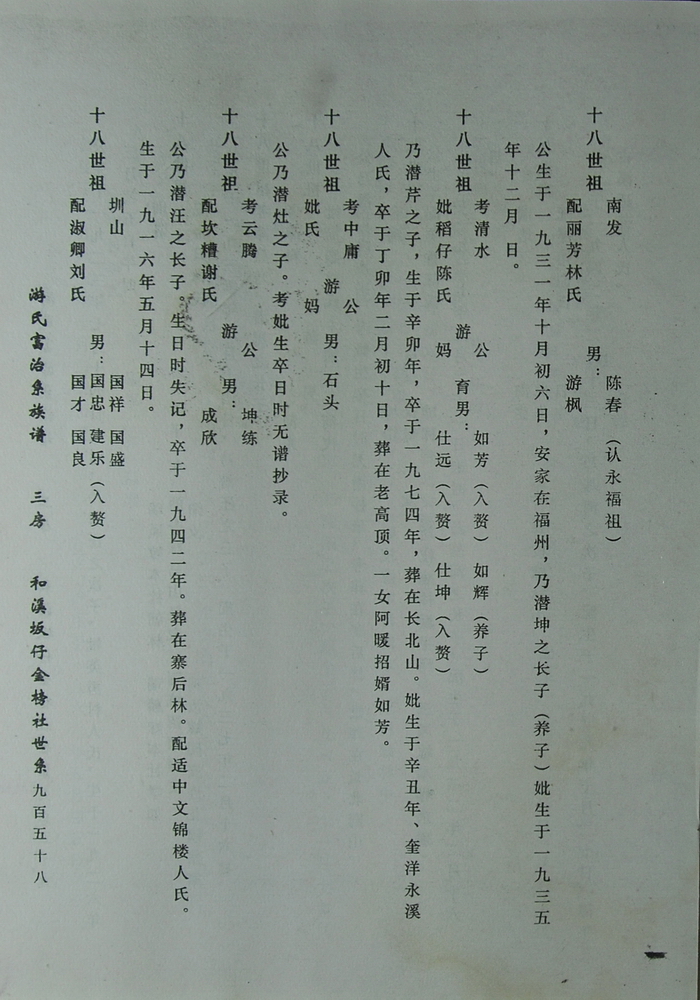 十八世祖 南发
配丽芳林氏 男： 陈春（认永福祖）
游枫
公生于一九三一年十月初六日，安家在福州，乃潜坤之长子（养子）妣生于一九三五
年十二月 日。
十八世祖 考清水 公 如芳（入赘） 如辉（养子）
妣稻仔陈氏 游 妈 育男： 仕远（入赘） 仕坤（入赘）
乃潜芹之子，生于辛卯年，卒于一九七四年，葬在长北山。妣生于辛丑年、奎洋永溪
人氏，卒于丁卯年二月初十日，葬在老高顶。一女阿暖招婿如芳。
十八世祖 考中庸 公
妣氏 游 妈 男：石头
公乃潜灶之子。考妣生卒日时无谱抄录。
十八世祖 考云腾 公 坤练
配坎糟谢氏 游 男： 成欣
公乃潜汪之长子。生日时失记，卒于一九四二年。葬在寨后林。配适中文锦楼人氏。
生于一九一六年五月十四日。
十八世祖 圳山 国祥 国盛
男：国忠 建乐（入赘）
配淑卿刘氏 国才 国良
游氏富治系族谱 三房 和溪坂仔金榜社世系 九百五十八